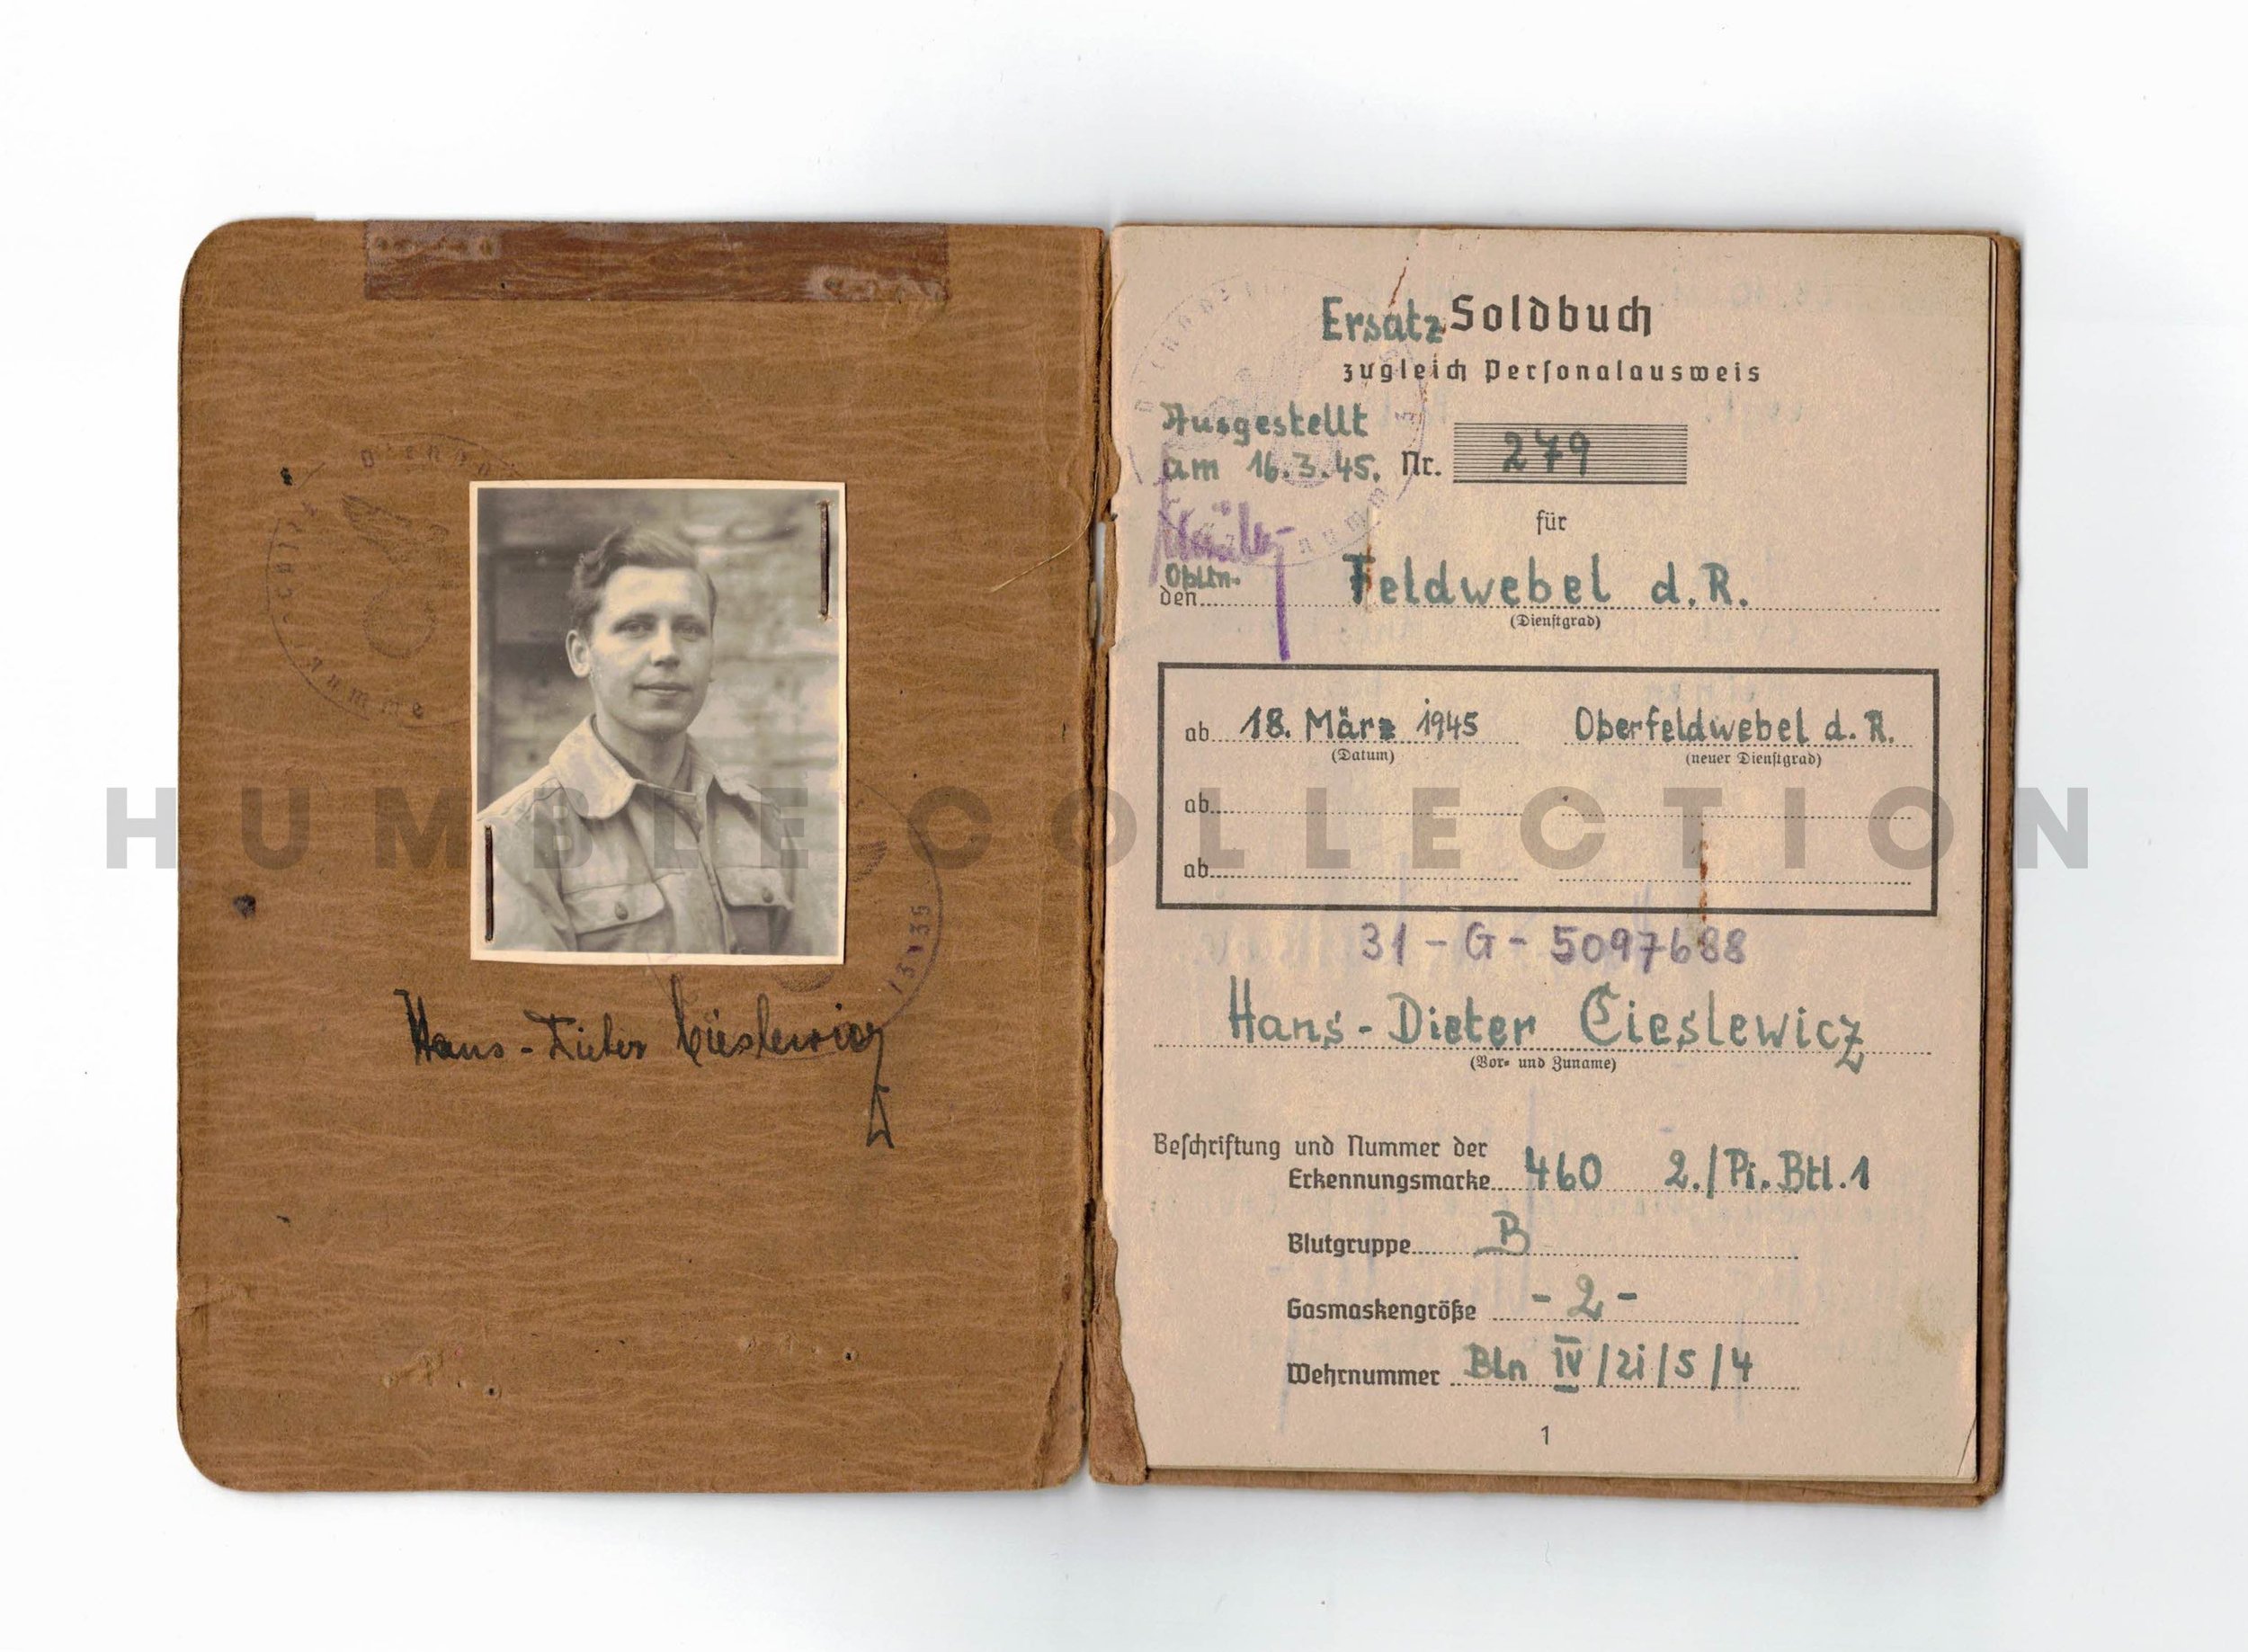 Hans-Dieter Cieslewicz
Ersatz Soldbuch
zugleich Personalausweis
Ausgestellt
am 16.3.45. Nr. 279
für
Obltn.
den Feldwebel d. R.
(Dienstgrad)
ab 18. März 1945 Oberfeldwebel d. R.
(Datum) (neuer Dienstgrad)
ab
ab
31 - G - 5097688
Hans-Dieter Cieslewicz
(Vor= und Zuname)
Beschriftung und Nummer der
Erkennungsmarke 460 2./Pi.Btl.1
Blutgruppe B
Gasmaskengröße - 2 -
Wehrnummer Bln IV/21/5/4
1
HUMBLE COLLECTION